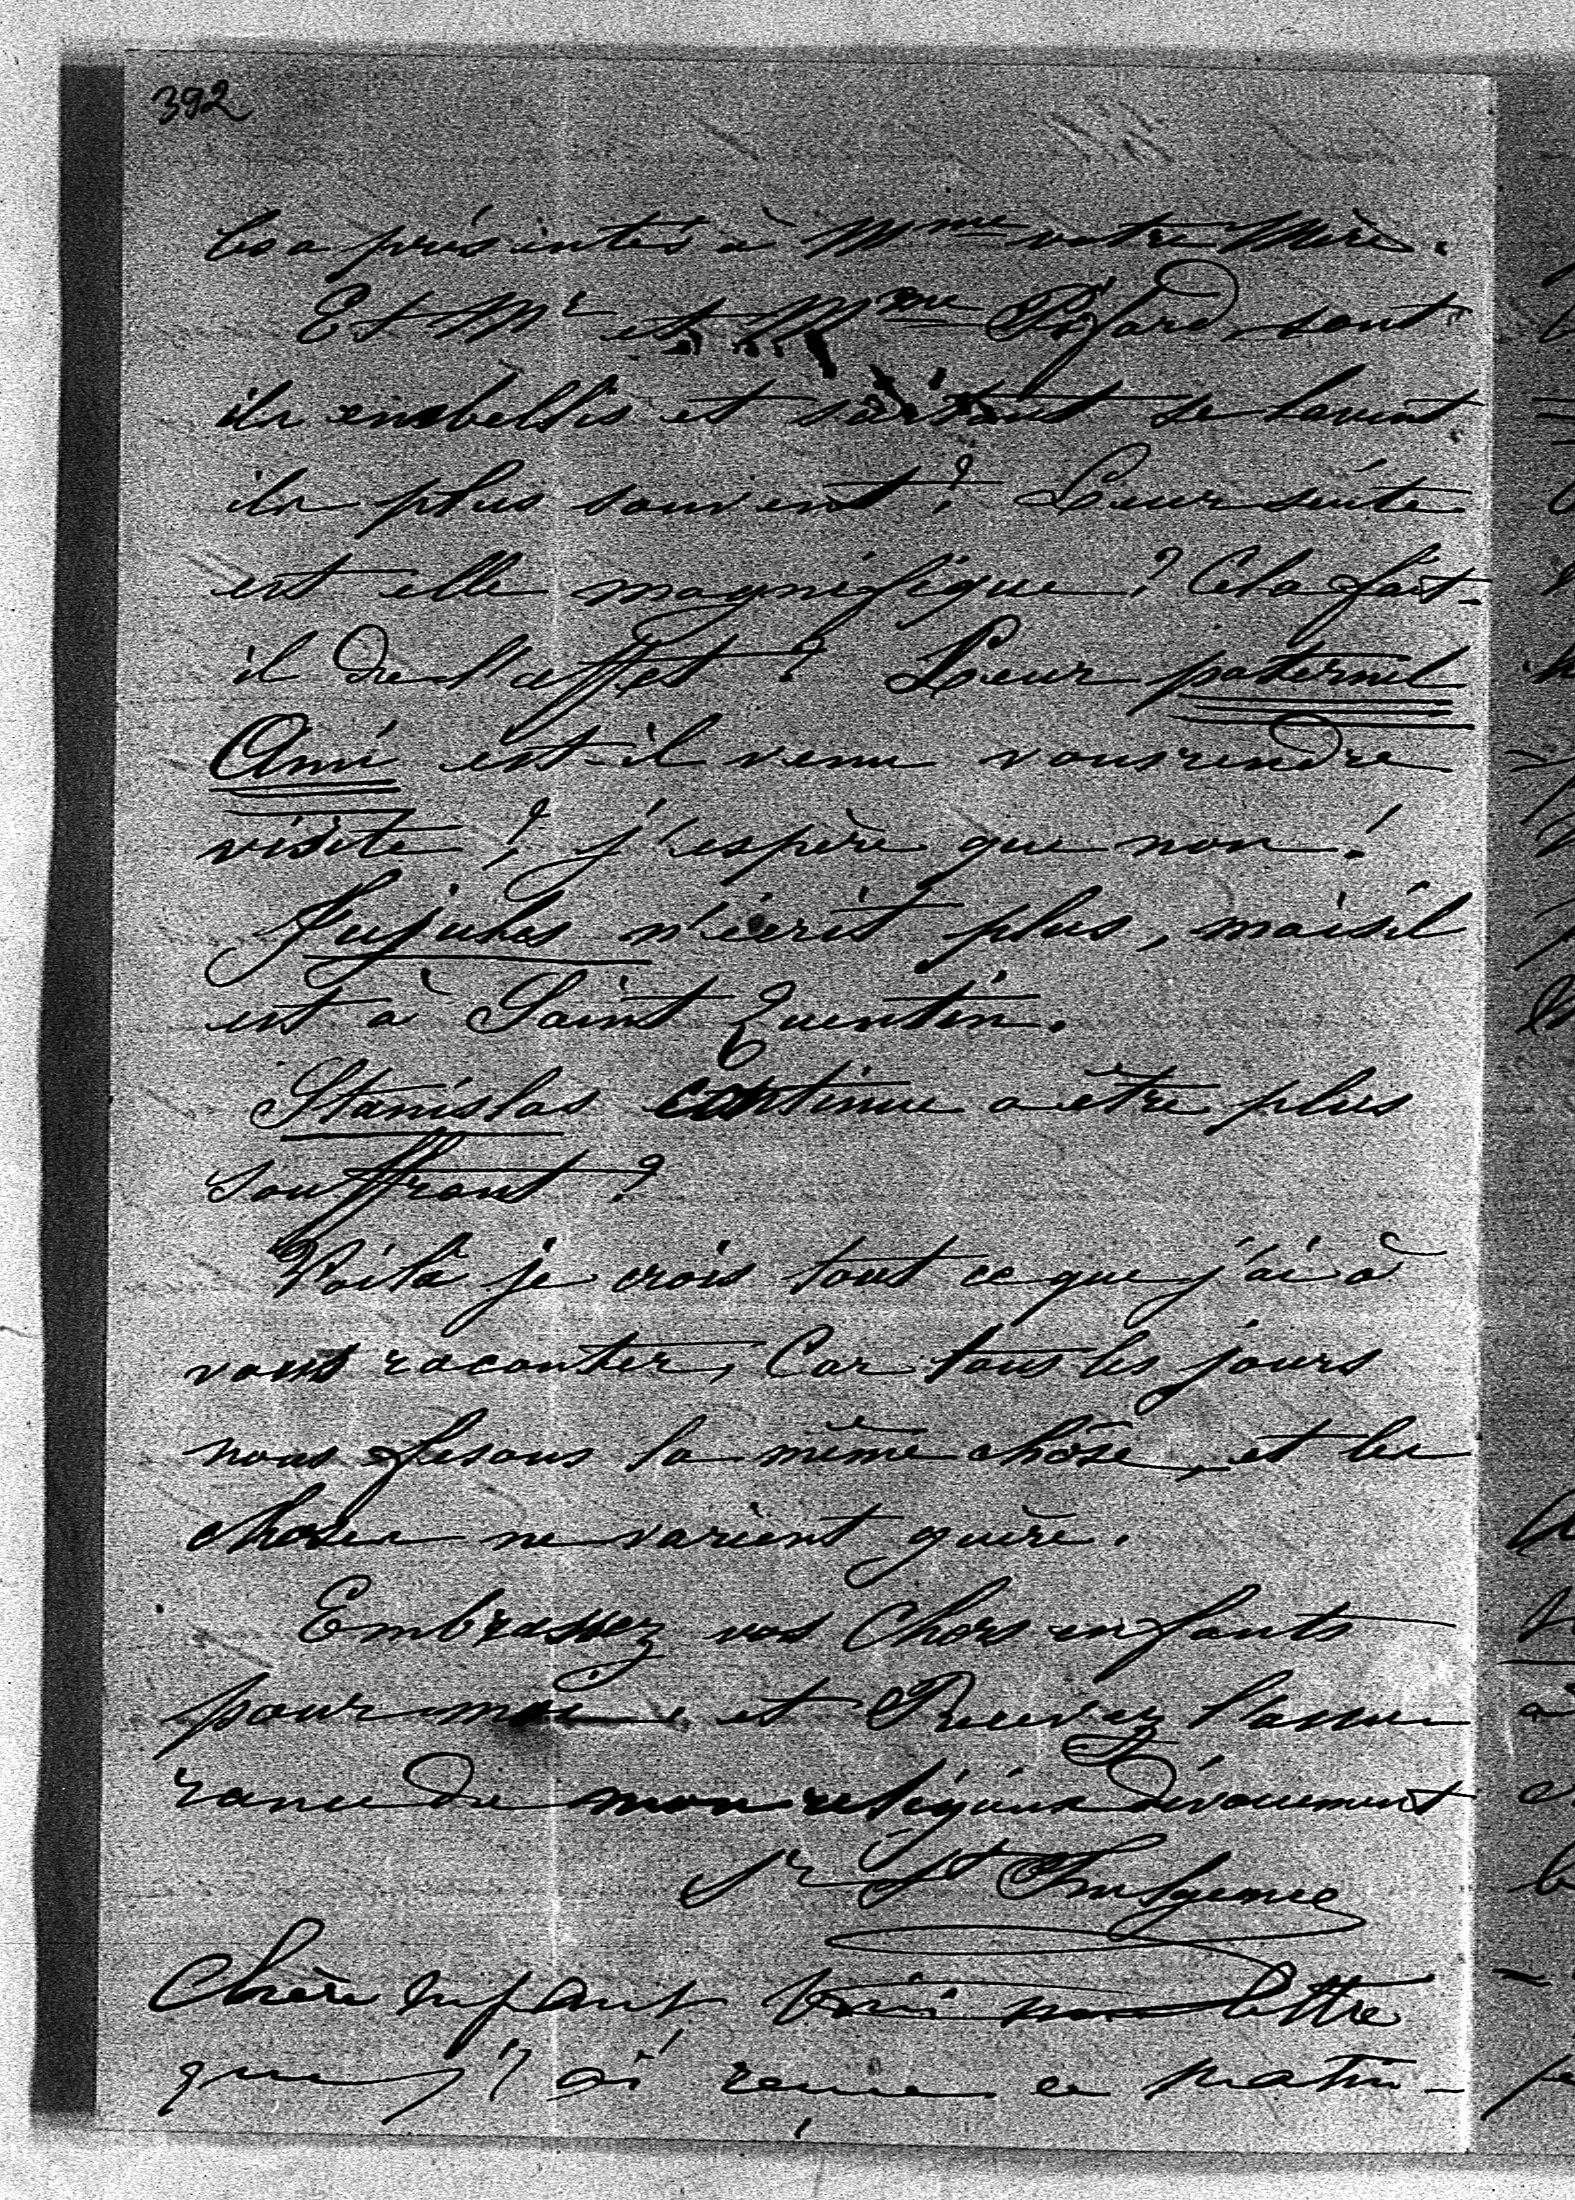 392
les a présentés à Mme votre Mère.
Et Mr et Mme Pifard sont
ils embellis et surtout se lavent
ils plus souvent ? Leur suite
est elle magnifique ? Cela fait-
il de l'effet ? Leur paternel
Ami est-il venu vous rendre
visite ? j'espère que non !
Jujubes n'écrit plus, mais il
est à Saint Quentin.
Stanislas continue a être plus
souffrant ?
Voilà je crois tout ce que j'ai à
vous raconter, Car tous les jours
nous fesons la même chose, et les
choses ne varient guère.
Embrassez vos Chers enfants
pour moi, et Recevez l'assu
rance de mon religieux dévouement
Sr St Fulgence
Chère Enfant Voici une lettre
que j'ai reçue ce matin -